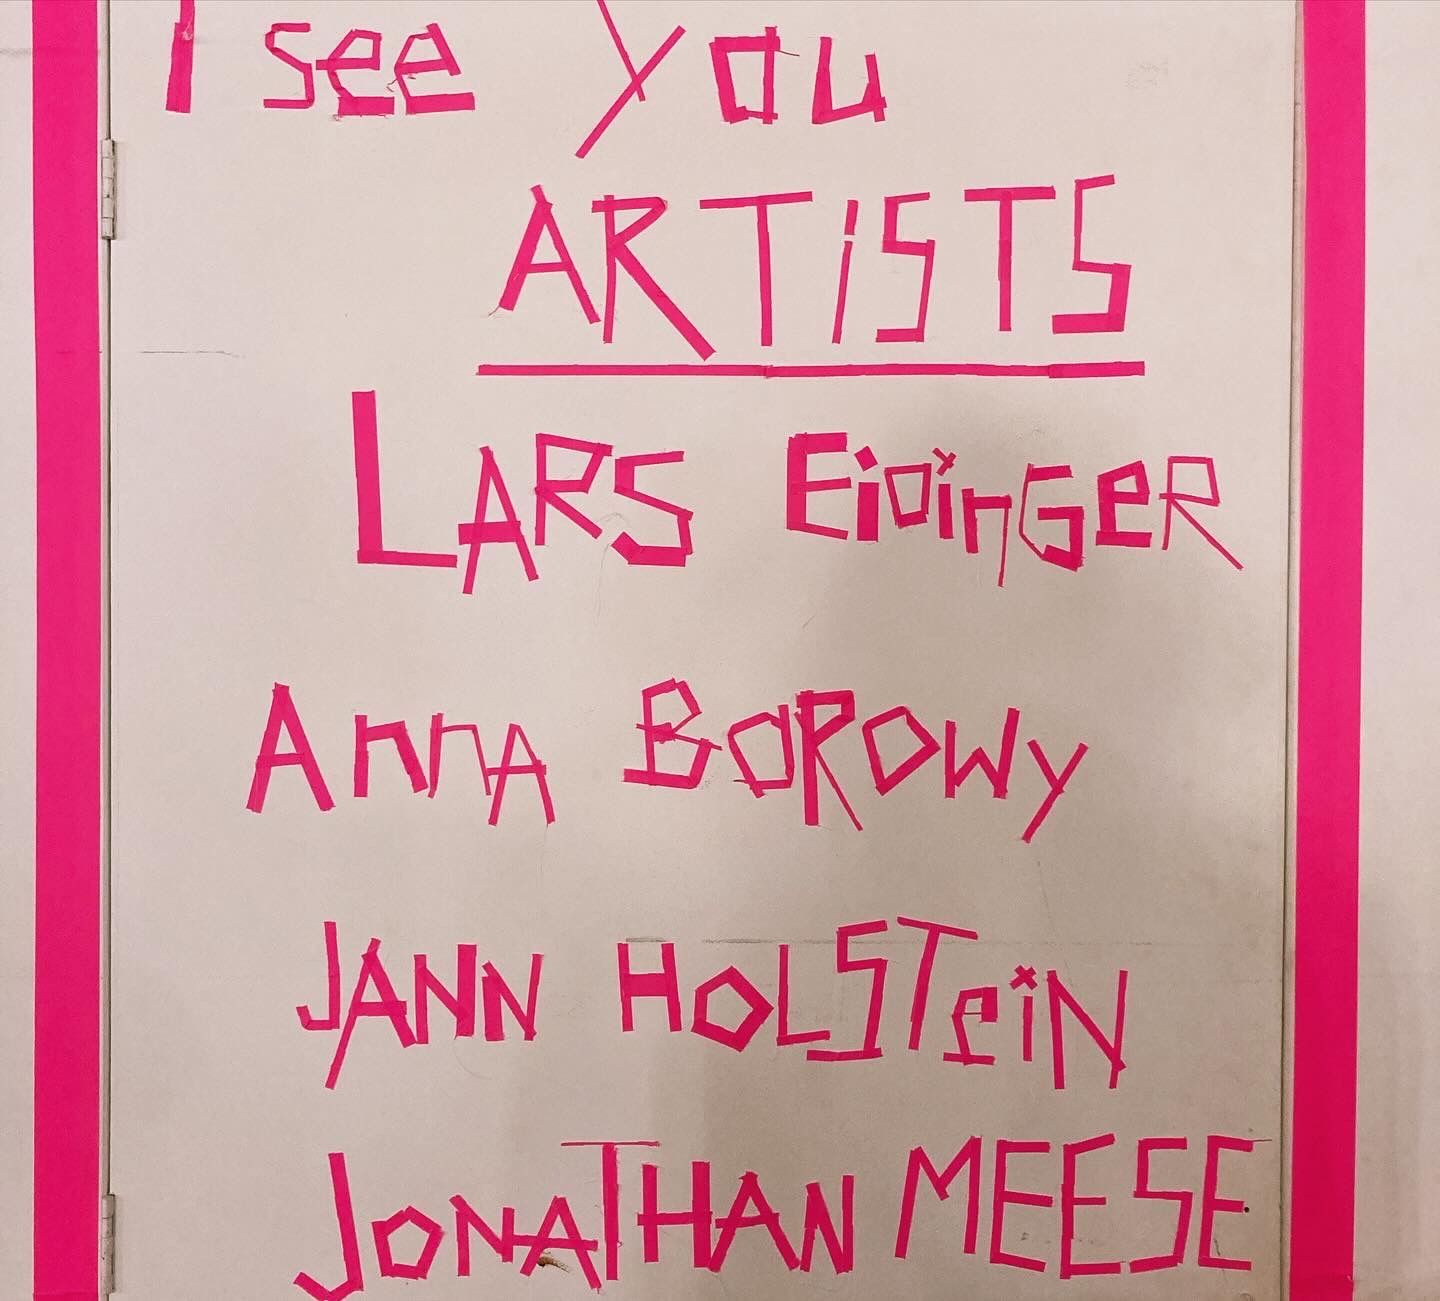 I see you
ARTiSTS
LARS EiDinGER
AnnA BOROWy
JANN HOLSTeiN
JONATHAN MEESE